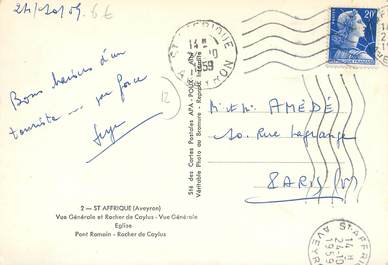 24/10/59.
6 €
ST AFFRIQUE
AVEYRON
14 H
24-10
1959
20F
Bons baisers d'un
touriste ... par force
Serge
12
Sté des Cartes Postales APA-POUX - Albi
Véritable Photo au Bromure - Reprod. Interdite
M. et Me AMÉDÉ
10. Rue Lagrange
PARIS (V)
2 — ST AFFRIQUE (Aveyron)
Vue Générale et Rocher de Caylus - Vue Générale
Eglise
Pont Romain - Rocher de Caylus
ST-AFFRIQUE
14 H
24-10
1959
AVEYRON